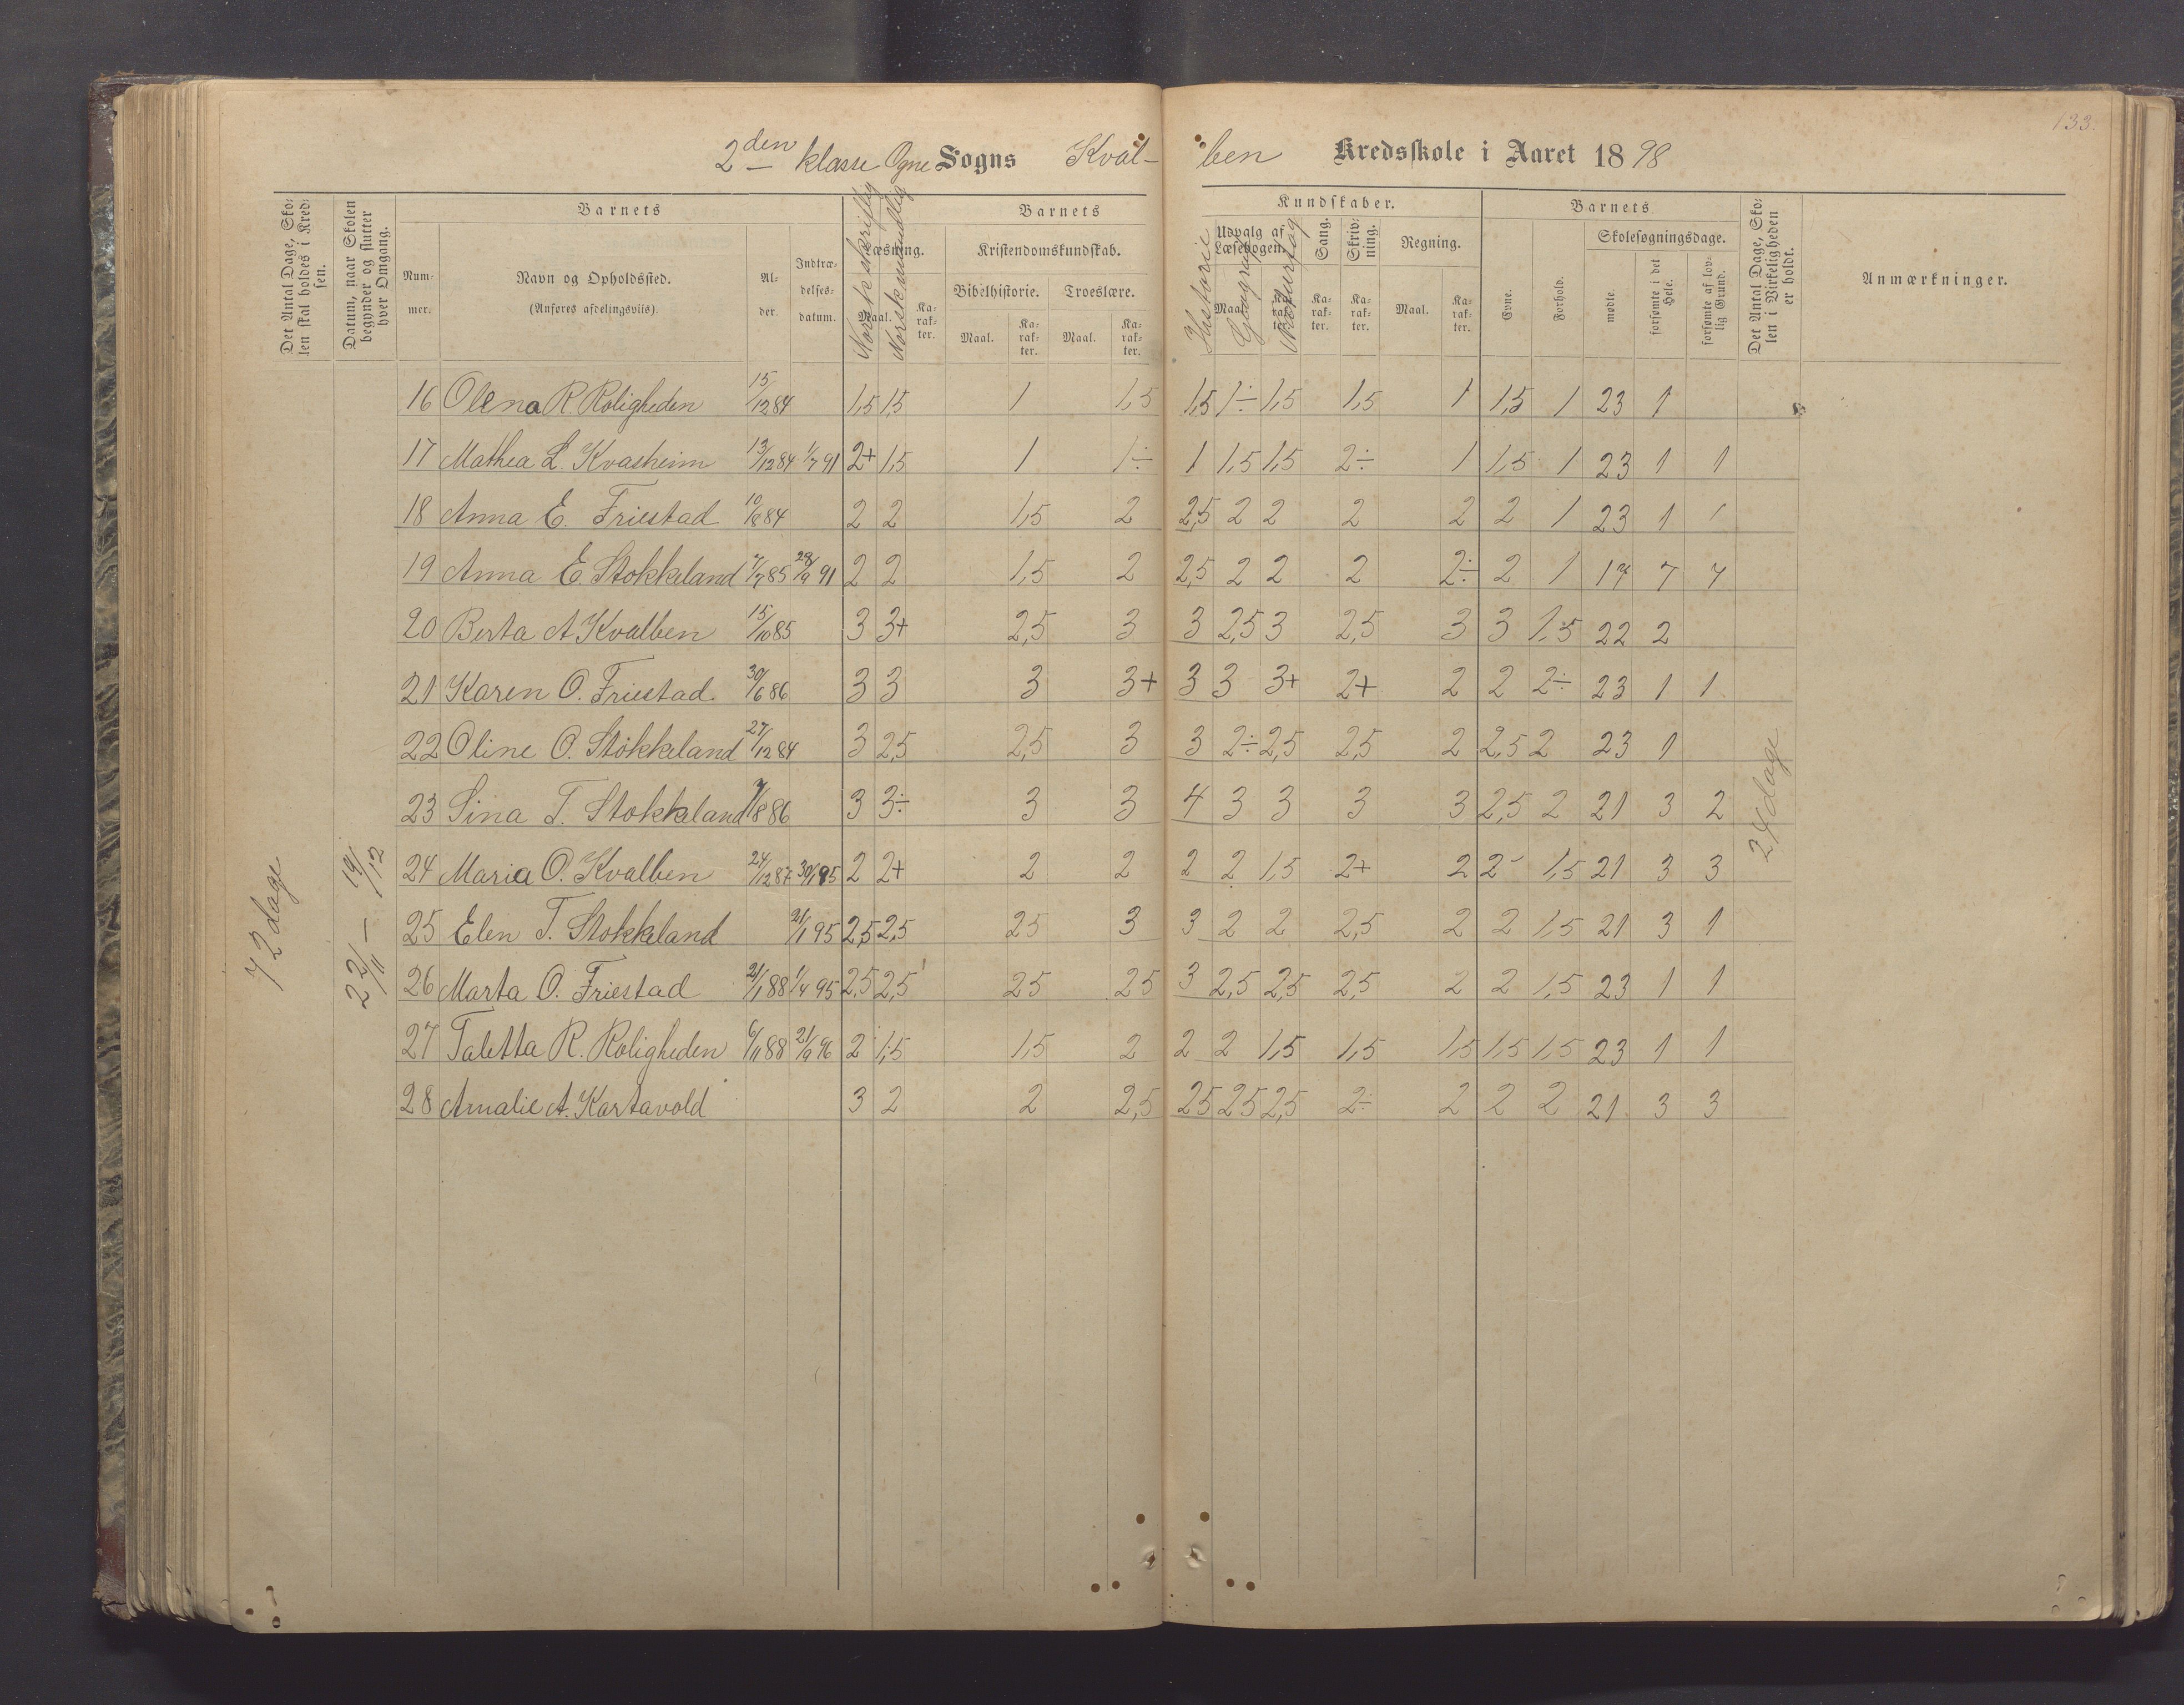 133.
2den klasse Ogne Sogns Kval- ben Kredsskole i Aaret 1898
Det Antal Dage, Skolen skal holdes i Kredsen.
Datum, naar Skolen begynder og slutter hver Omgang.
Barnets
Nummer.
Navn og Opholdssted.
(Anføres afdelingsviis).
Alder.
Indtrædelsesdatum.
Barnets
Læsning.
Norsk skriftlig
Norsk mundtlig
Maal.
Karakter.
Kristendomskundskab.
Bibelhistorie.
Troeslære.
Maal.
Karakter.
Maal.
Karakter.
Kundskaber.
Udvalg af Læsebogen.
Historie
Geografi
Naturfag
Maal.
Karakter.
Sang.
Karakter.
Skrivning.
Karakter.
Regning.
Maal.
Karakter.
Barnets
Evne.
Forhold.
Skolesøgningsdage.
mødte.
forsømte i det Hele.
forsømte af lovlig Grund.
Det Antal Dage, Skolen i Virkeligheden er holdt.
Anmærkninger.
72 dage
22/11 – 19/12
24 dage
16 Olena R. Roligheden 15/12 84 1,5 1,5 1 1,5 1,5 1÷ 1,5 1,5 1 1,5 1 23 1
17 Mathea L. Kvasheim 13/12 84 1/7 91 2+ 1,5 1 1÷ 1 1,5 1,5 2÷ 1 1,5 1 23 1 1
18 Anna E. Friestad 10/8 84 2 2 1,5 2 2,5 2 2 2 2 2 1 23 1 1
19 Anna E. Stokkeland 7/7 85 28/9 91 2 2 1,5 2 2,5 2 2 2 2÷ 2 1 17 7 7
20 Berta A Kvalben 15/10 85 3 3+ 2,5 3 3 2,5 3 2,5 3 3 1,5 22 2
21 Karen O. Friestad. 30/6 86 3 3 3 3+ 3 3 3+ 2+ 2 2 2÷ 23 1 1
22 Oline O. Stokkeland 27/12 84 3 2,5 2,5 3 3 2÷ 2,5 2,5 2 2,5 2 23 1
23 Sina T. Stokkeland 7/8 86 3 3÷ 3 3 4 3 3 3 3 2,5 2 21 3 2
24 Maria O. Kvalben 24/12 87 30/1 95 2 2+ 2 2 2 2 1,5 2+ 2 2 1,5 21 3 3
25 Elen T. Stokkeland 21/1 95 2,5 2,5 25 3 3 2 2 2,5 2 2 1,5 21 3 1
26 Marta O. Friestad 21/1 88 1/4 95 2,5 2,5 25 25 3 2,5 2,5 2,5 2 2 1,5 23 1 1
27 Taletta R. Roligheden 6/11 88 21/9 96 2 1,5 1,5 2 2 2 1,5 1,5 1,5 1,5 1,5 23 1 1
28 Amalie A. Kartavold 3 2 2 2,5 25 25 2,5 2÷ 2 2 2 21 3 3